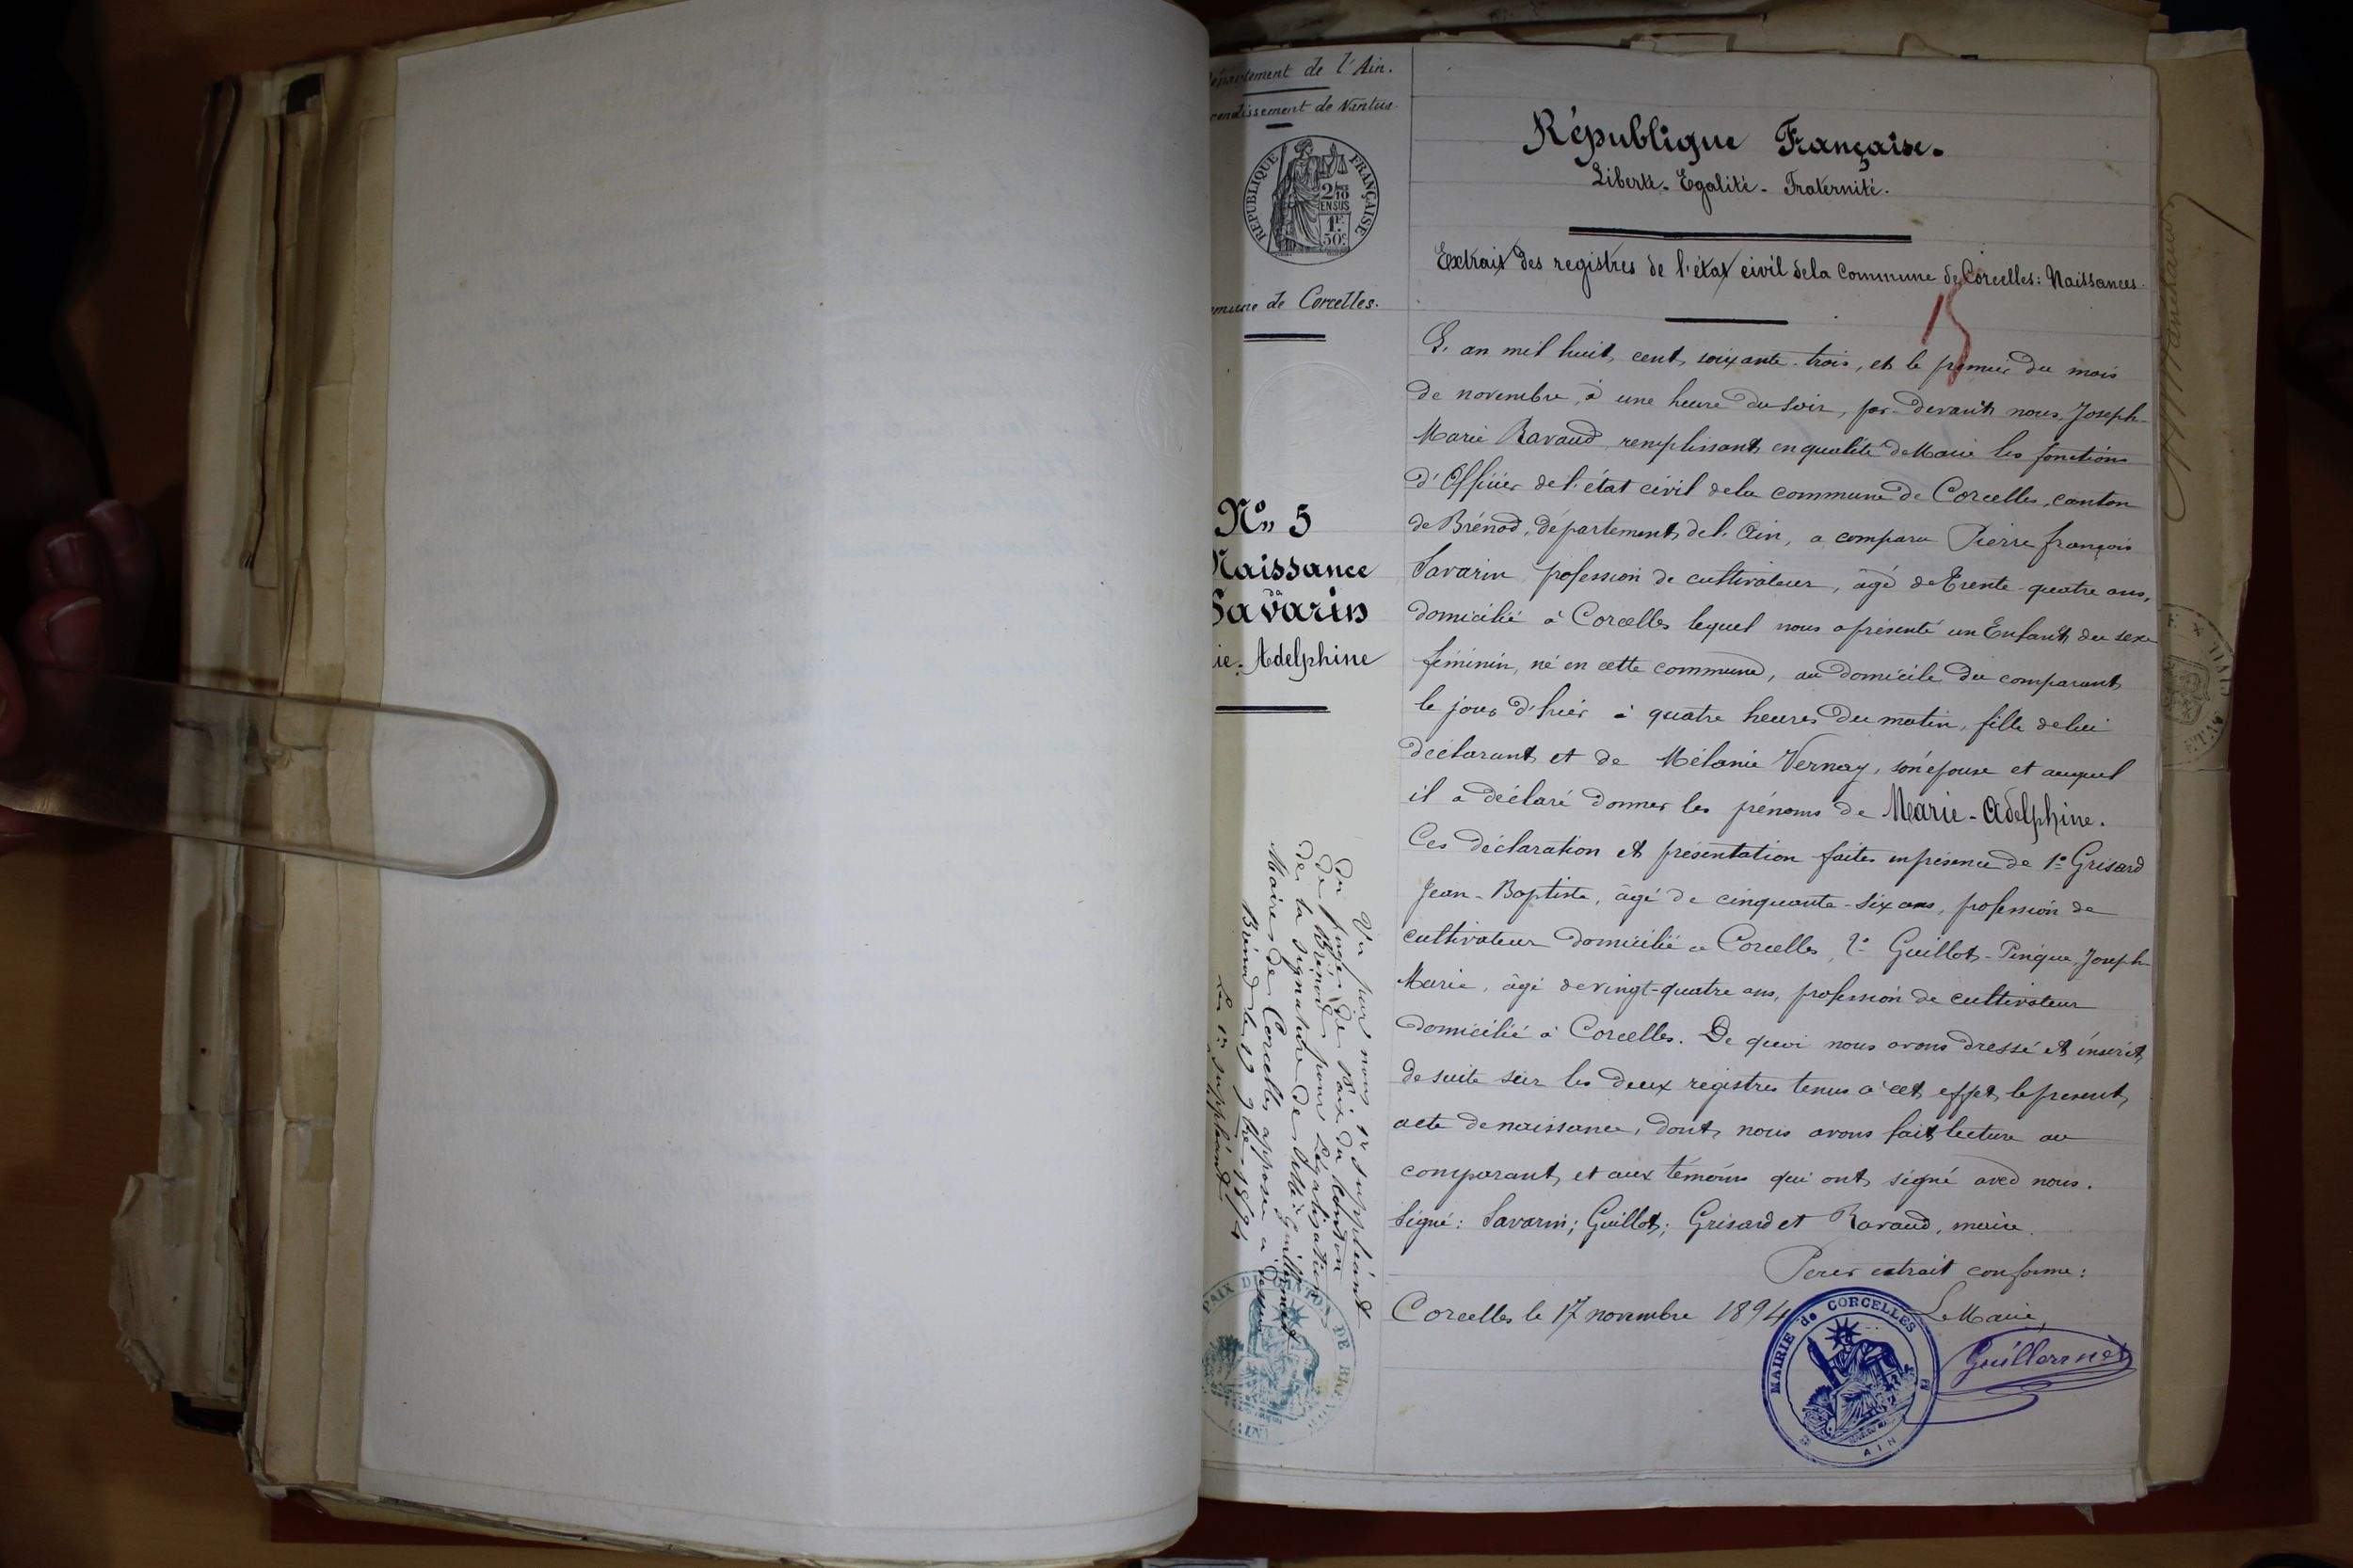 Département de l'Ain.
ondissement de Nantua
RÉPUBLIQUE FRANÇAISE
2/10
EN SUS
1F.
50c
mune de Corcelles.
N° 5
Naissance
de
Savarin
ie. Adelphine
Vu par nous 1er suppléant
du juge de Paix du Canton
de Brénod pour Légalisation
de la signature de Mr Guillermet
Maire de Corcelles apposée ci dessus
Brénod le 17 9bre 1894
Le 1er suppléant
PAIX DU CANTON DE BRÉNOD
AIN
République Française.
Liberté. Egalité. Fraternité.
Extrait des registres de l'état civil de la Commune de Corcelles: Naissances.
15
L'an mil huit cent soixante-trois, et le premier du mois
de novembre, à une heure du soir, par-devant nous Joseph-
Marie Ravaud, remplissant en qualité de Maire les fonctions
d'Officier de l'état civil de la commune de Corcelles, canton
de Brénod, département de l'Ain, a comparu Pierre françois
Savarin, profession de cultivateur, âgé de Trente-quatre ans,
domicilié à Corcelles lequel nous a présenté un Enfant du sexe
féminin, né en cette commune, au domicile du comparant
le jour d'hier à quatre heures du matin, fille de lui
déclarant et de Mélanie Vernay, son épouse et auquel
il a déclaré donner les prénoms de Marie-Adelphine.
Ces déclaration et présentation faites en présence de 1° Grisard
Jean-Baptiste, âgé de cinquante-six ans, profession de
cultivateur domicilié à Corcelles, 2° Guillot-Pingue, Joseph-
Marie, âgé de vingt-quatre ans, profession de cultivateur
domicilié à Corcelles. De quoi nous avons dressé et inscrit
de suite sur les deux registres tenus à cet effet, le présent,
acte de naissance, dont nous avons fait lecture au
comparant, et aux témoins qui ont signé avec nous.
Signé: Savarin; Guillot; Grisard et Ravaud, maire.
Pour extrait conforme:
Corcelles le 17 novembre 1894
Le Maire,
Guillermet
MAIRIE de CORCELLES
AIN